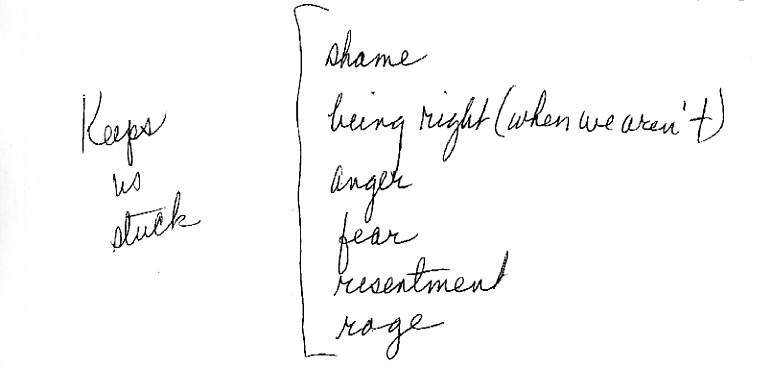 Keeps
us
stuck
shame
being right (when we aren't)
anger
fear
resentment
rage